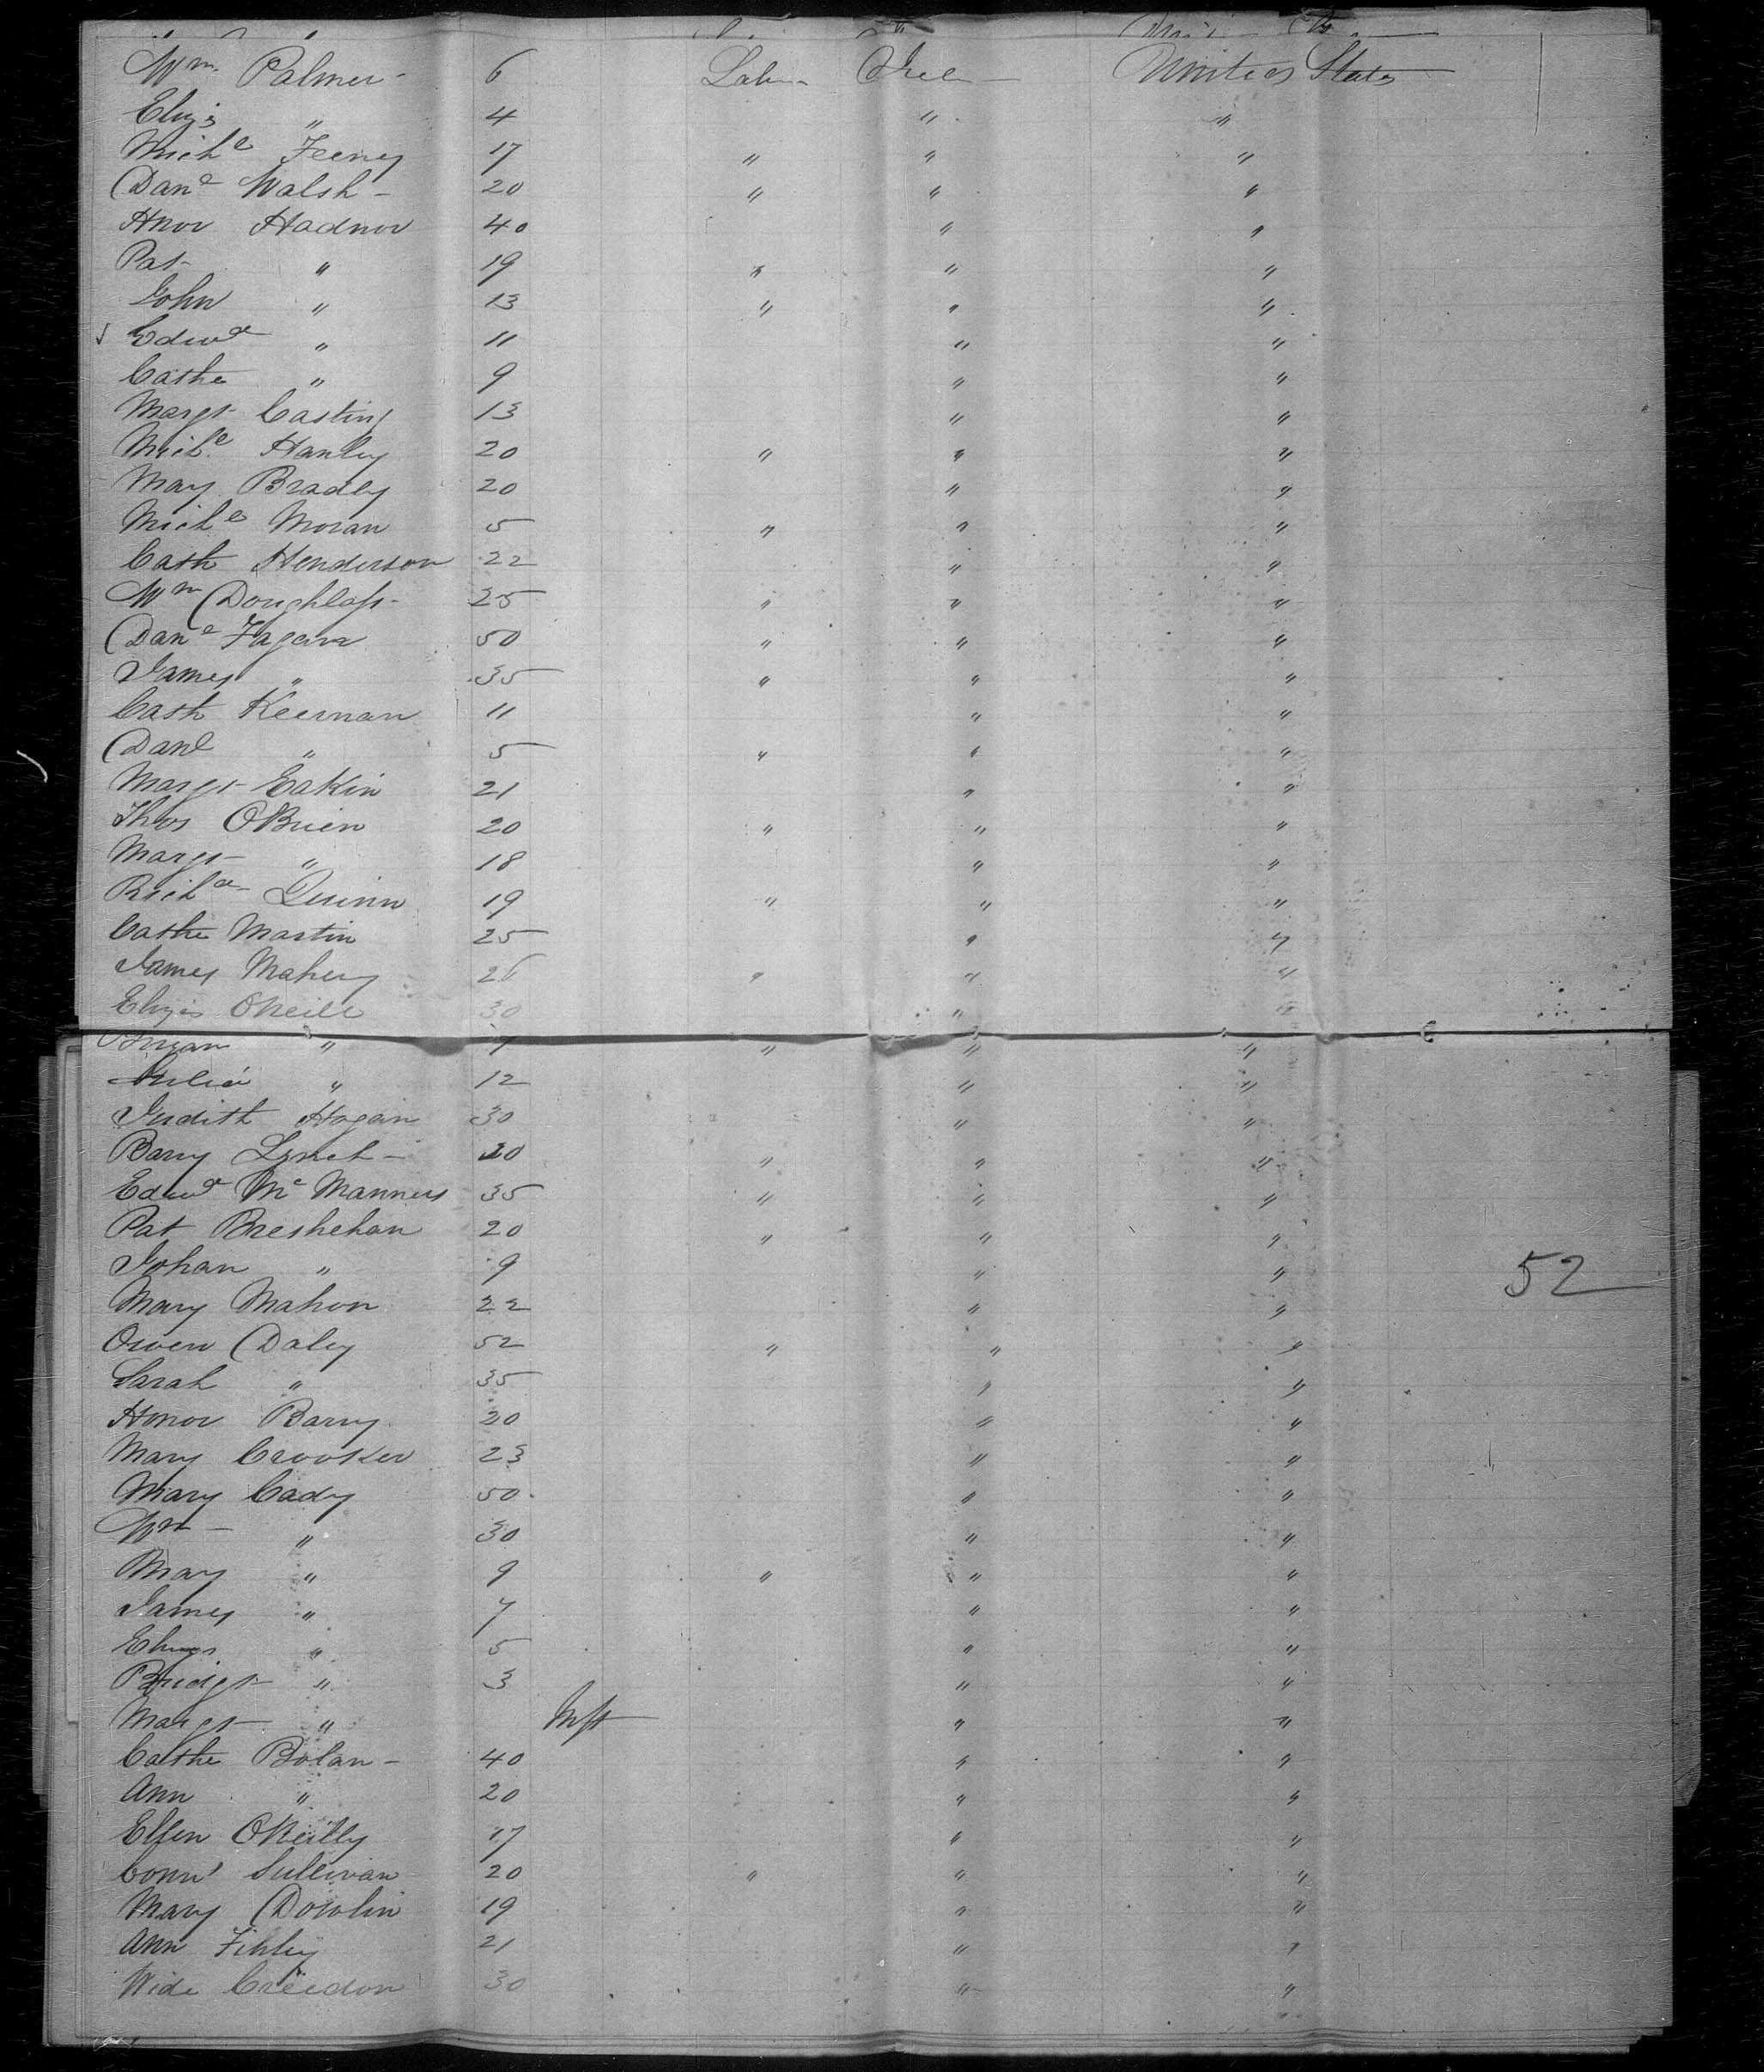 Wm Palmer - 6 Labr Irel United States
Eliza " 4 " "
Michl Feeney 17 " " "
Danl Walsh - 20 " " "
Hnor Hadnor 40 " "
Pat " 19 " " "
John " 13 " " "
Edwd " 11 " "
Cathe " 9 " "
Margt Casting 13 " "
Michl Hanley 20 " " "
Mary Bradly 20 " "
Michl Moran 5 " " "
Cath Henderson 22 " "
Wm Doughlass - 25 " " "
Danl Fagan 50 " " "
James " 35 " " "
Cath Keernan 11 " "
Danl " 5 " " "
Margt Eakin 21 " "
Thos OBrien 20 " " "
Margt " 18 " "
Richd Quinn 19 " " "
Cathe Martin 25 " "
James Mahery 26 " " "
Eliza ONeill 30 " "
" 7 " " "
Julia " 12 " "
Judith Hogan 30 " "
Barry Lynch - 20 " " "
Edwd Mc Manners 35 " " "
Pat Breshehan 20 " " "
Johan " 9 " "
Mary Mahon 22 " "
52
Owen Daley 52 " " "
Sarah " 35 " "
Honor Barry 20 " "
Mary Crooker 23 " "
Mary Cady 50 " "
Wm " 30 " "
Mary " 9 " " "
James " 7 " "
" 5 " "
Bridgt " 3 " "
Margt " Inft " "
Cathe Bolan - 40 " "
Ann " 20 " "
Ellen OReilly 17 " "
Conn' Sullivan 20 " " "
Mary Dowlin 19 " "
Ann 21 " "
Creedon 30 " "